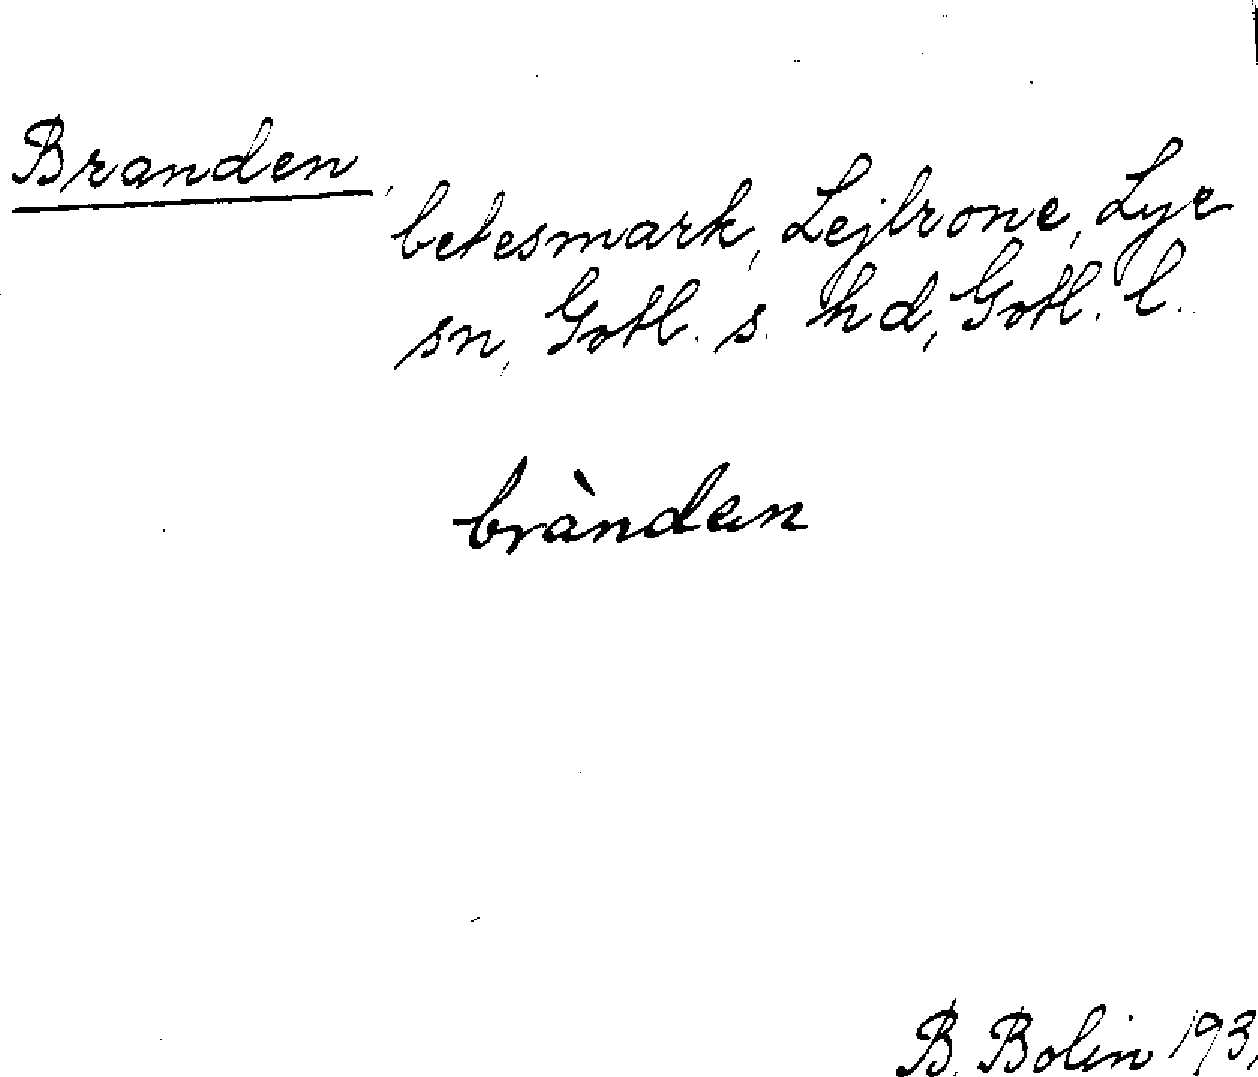 Branden,
betesmark, Lejbrone, Lye
sn, Gotl. s. hd, Gotl. l.
brànden
B. Bolin 193